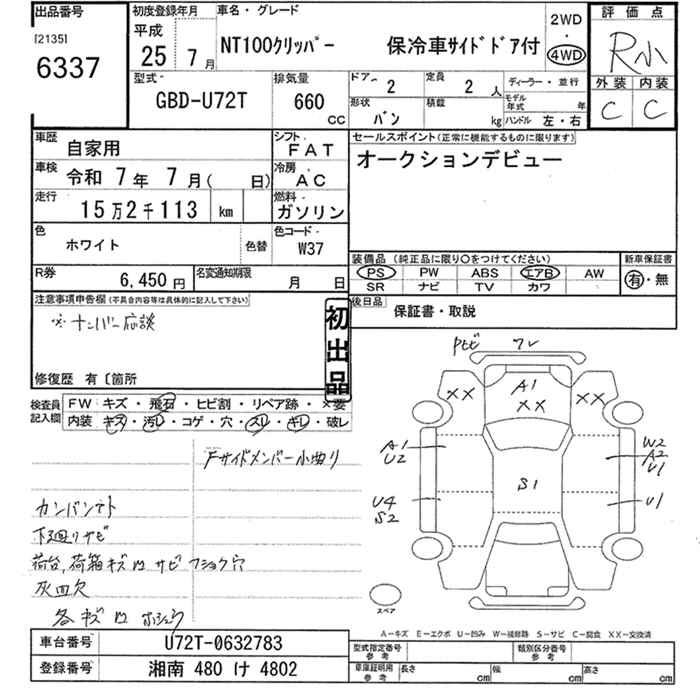 出品番号
[2135]
6337
初度登録年月
平成
25年 7月
車名・グレード
NT100クリッパー 保冷車サイドドア付
2WD
・
4WD
評価点
R小
外装 内装
C C
型式
GBD-U72T
排気量
660
cc
ドア 2
定員 2人
ディーラー・並行
形状 バン
積載 kg
モデル年式 年
ハンドル 左・右
車歴 自家用
シフト FAT
車検 令和 7年 7月( 日)
冷房 AC
走行 15万2千113 km
燃料 ガソリン
色 ホワイト 色替
色コード W37
R券 6,450円
名変通知期限 月 日
セールスポイント(正常に機能するものに限ります)
オークションデビュー
装備品 (純正品に限り○をつけてください) 新車保証書
PS PW ABS エアB AW
SR ナビ TV カワ
有・無
後日品 保証書・取説
注意事項申告欄(不具合内容等は具体的に記入して下さい)
※ナンバー応談
初出品
修復歴 有〔箇所
検査員記入欄
FW キズ・飛石・ヒビ割・リペア跡・×要
内装 キズ・汚レ・コゲ・穴・スレ・キレ・破レ
Fサイドメンバー小曲り
カンバンアト
下廻りサビ
荷台,荷箱キズ凹サビフショク穴
灰皿欠
各キズ凹ホシュウ
Pセビ フレ
XX A1 XX
XX
A1
U2
W2
A2
U1
S1
U4
S2
U1
スペア
A−キズ E−エクボ U−凹み W−補修跡 S−サビ C−腐食 XX−交換済
車台番号 U72T-0632783
登録番号 湘南 480 け 4802
型式指定番号 参考
類別区分番号 参考
車庫証明用 参考
長さ cm 幅 cm 高さ cm